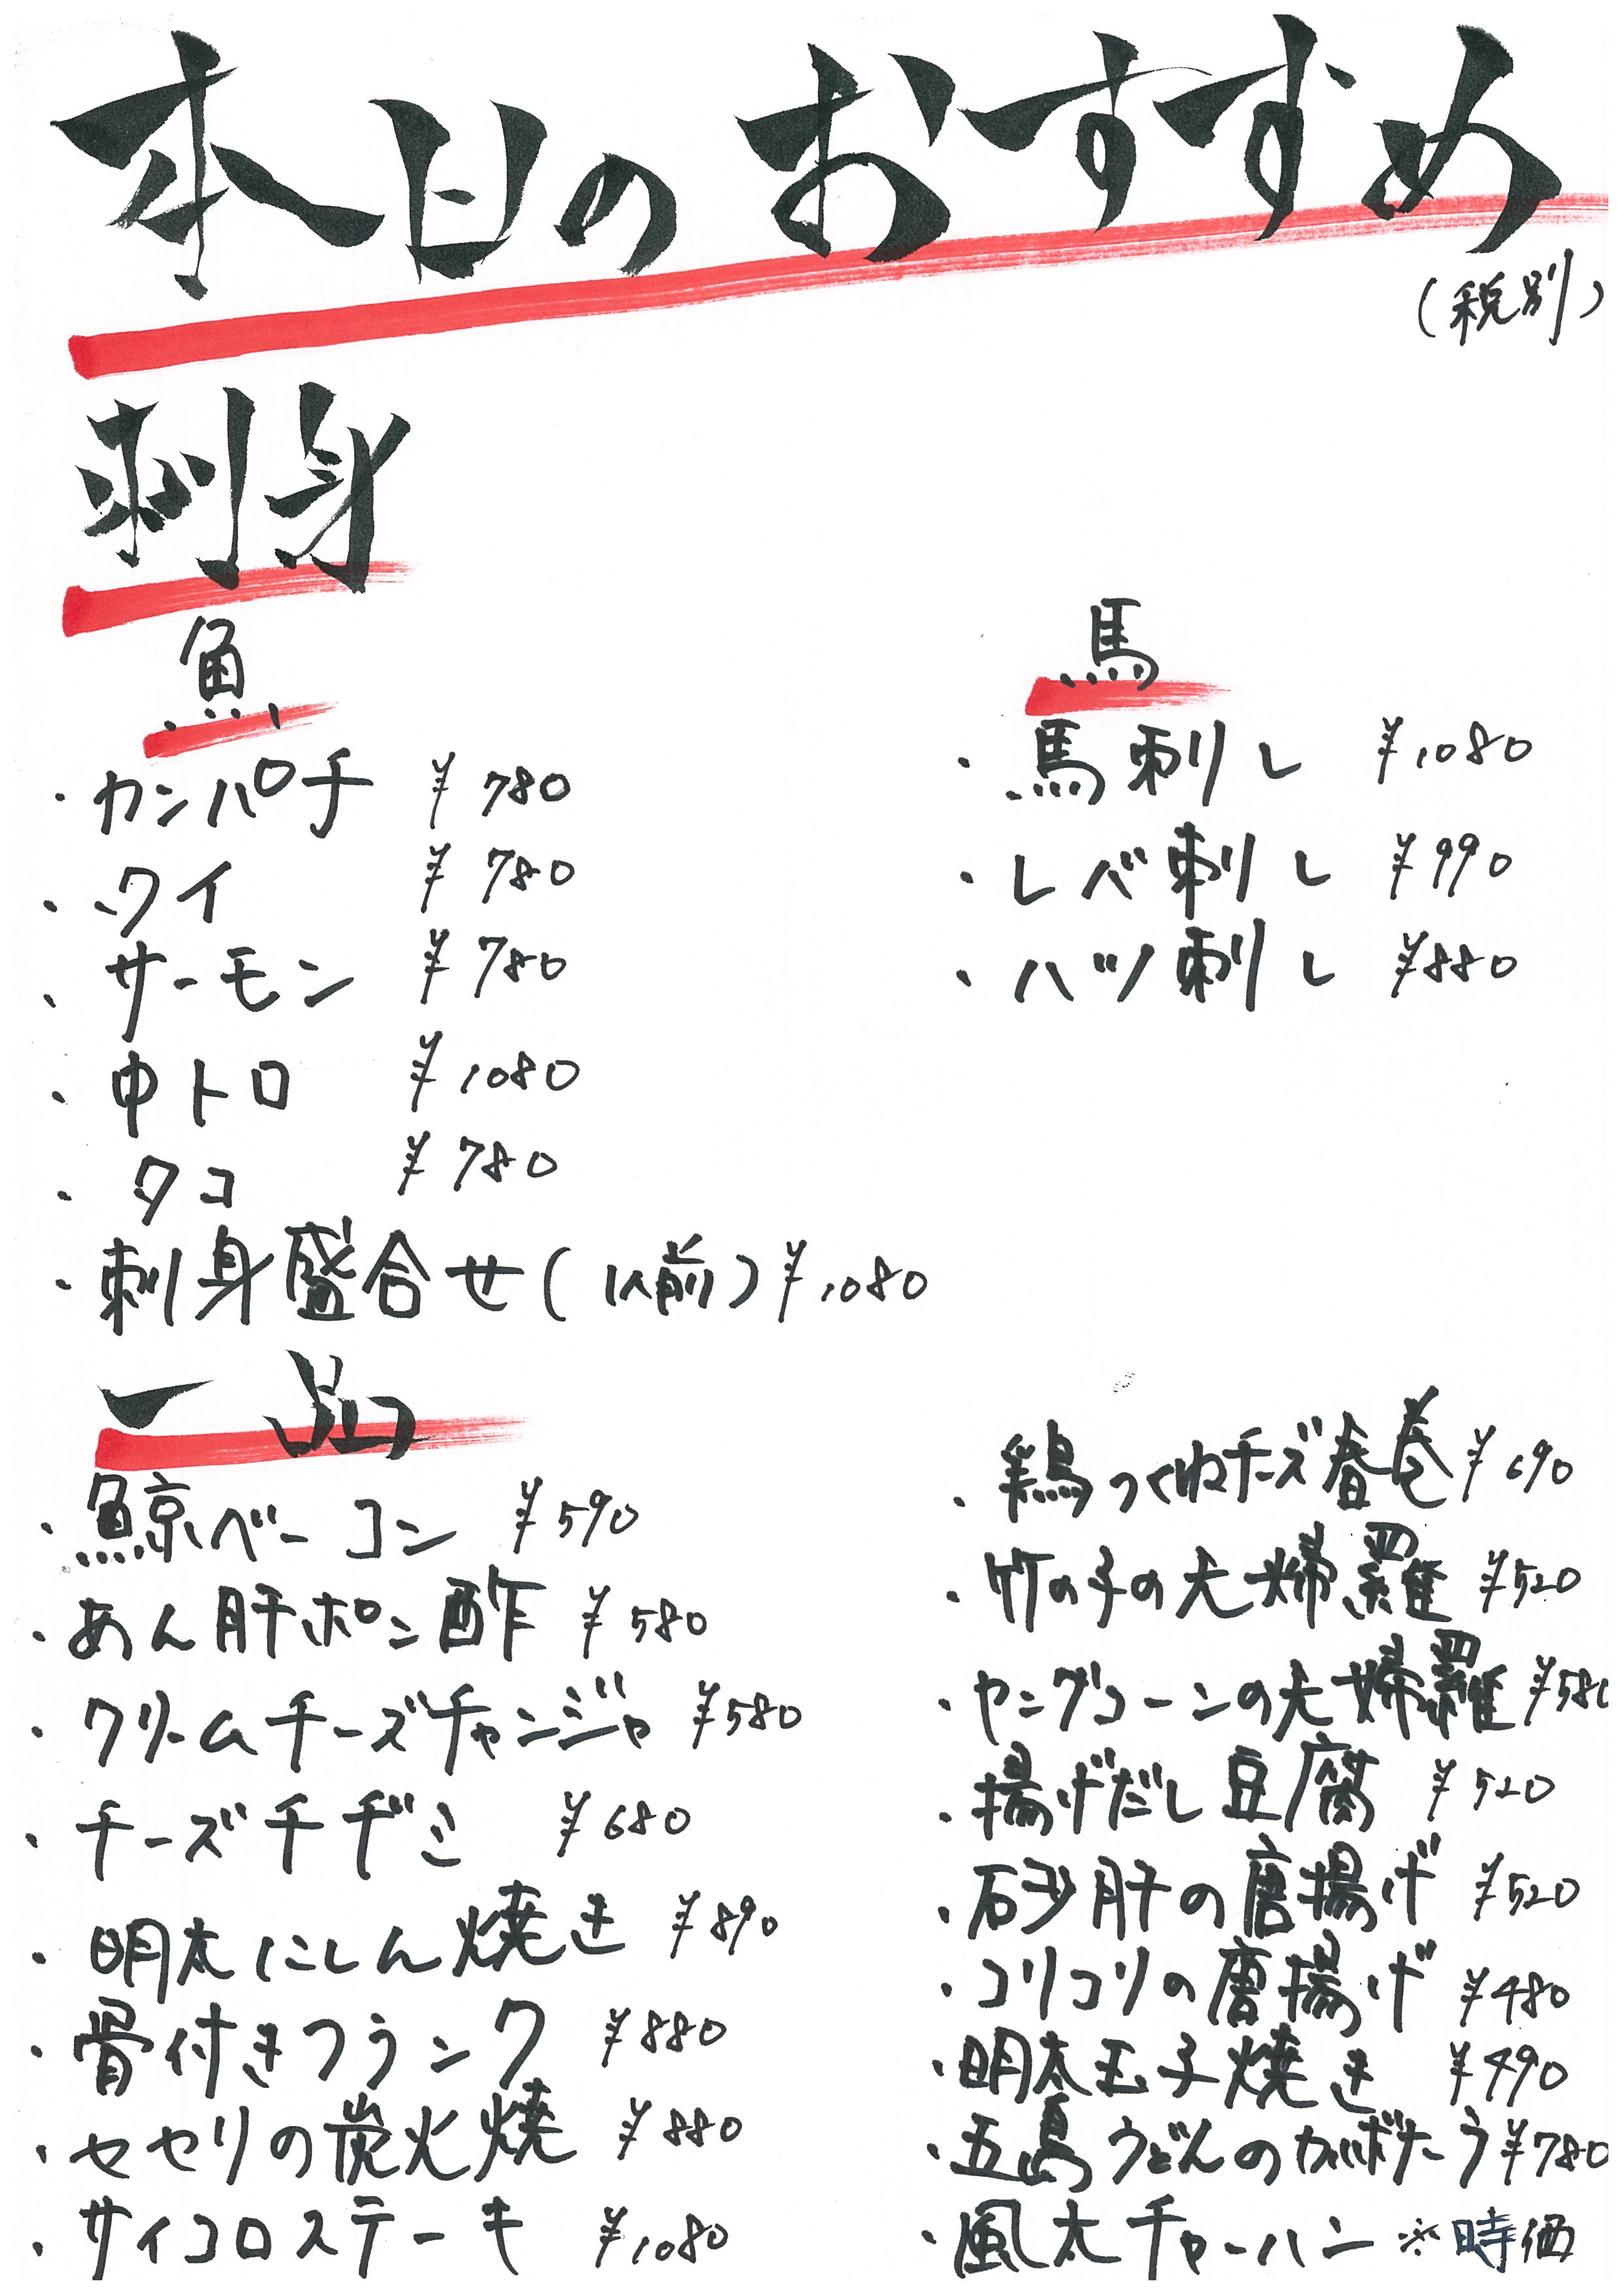 本日のおすすめ
(税別)
刺身
魚
・カンパチ ¥780
・タイ ¥780
・サーモン ¥780
・中トロ ¥1080
・タコ ¥780
・刺身盛合せ(1人前) ¥1080
馬
・馬刺し ¥1080
・レバ刺し ¥990
・ハツ刺し ¥880
一品
・鯨ベーコン ¥590
・あん肝ポン酢 ¥580
・クリームチーズチャンジャ ¥580
・チーズチヂミ ¥680
・明太にしん焼き ¥890
・骨付きフランク ¥880
・セセリの炭火焼 ¥880
・サイコロステーキ ¥1080
・鶏つくねチーズ春巻 ¥690
・竹の子の天婦羅 ¥520
・ヤングコーンの天婦羅 ¥580
・揚げだし豆腐 ¥520
・砂肝の唐揚げ ¥520
・コリコリの唐揚げ ¥480
・明太玉子焼き ¥490
・五島うどんのカルボナーラ ¥780
・風太チャーハン ※時価